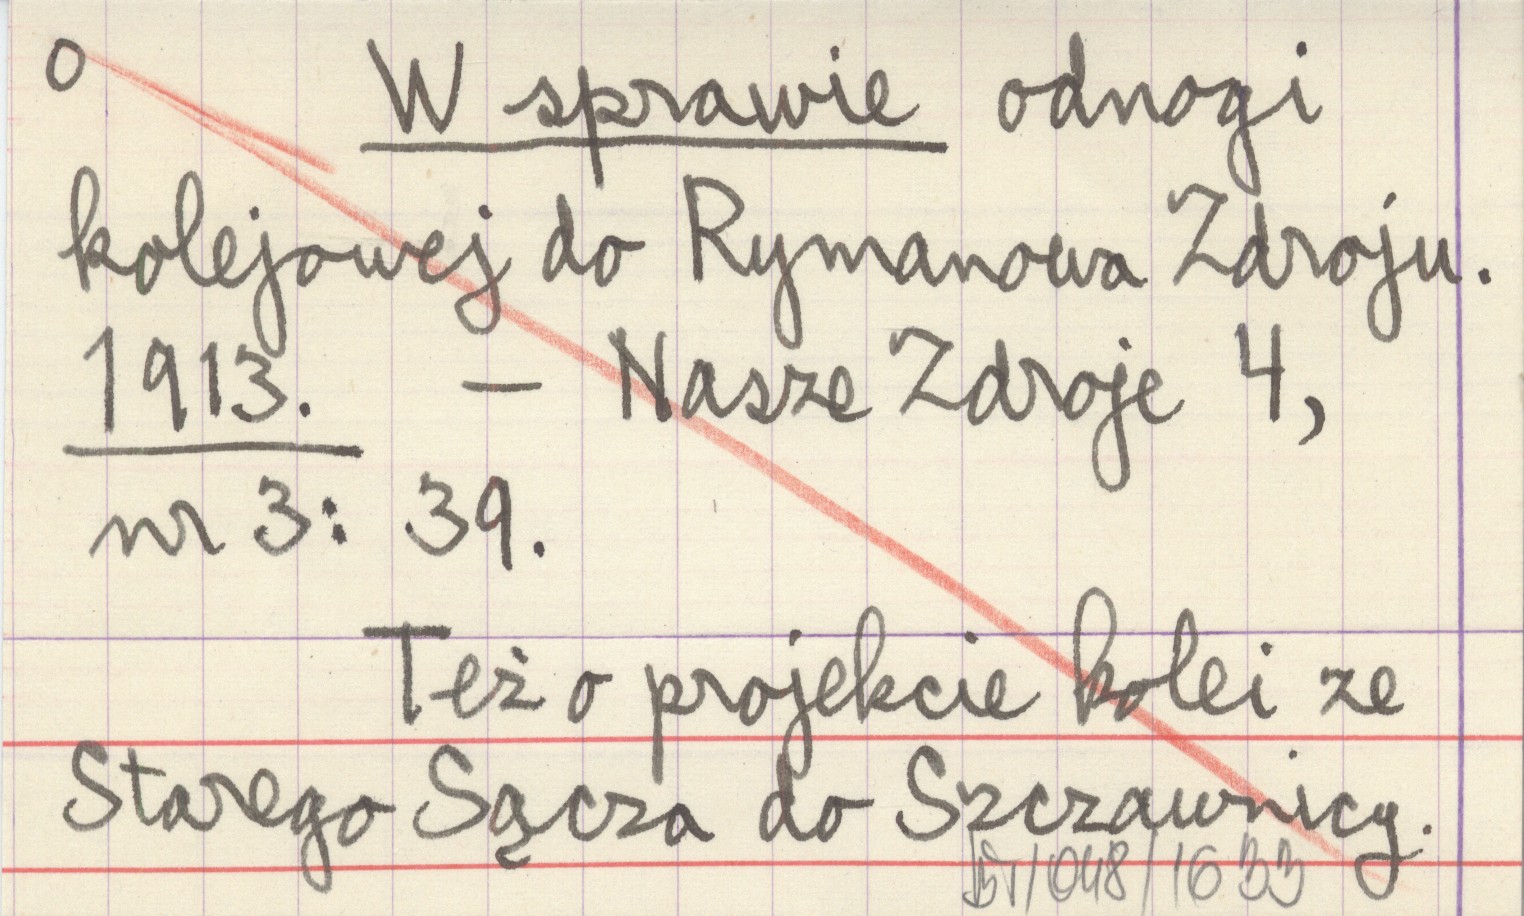 o W sprawie odnogi
kolejowej do Rymanowa Zdroju.
1913. — Nasze Zdroje 4,
nr 3: 39.
Też o projekcie kolei ze
Starego Sącza do Szczawnicy.
/048/1633